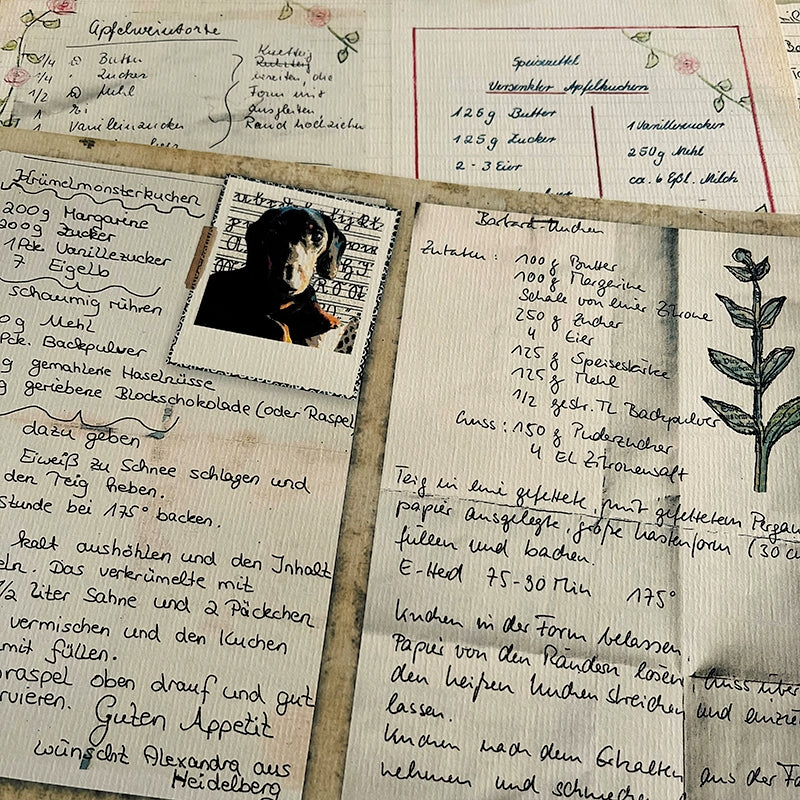 Apfelweintorte
1/4 Butter
1/4 " Zucker
1/2 Mehl
1 Ei
1 Vanillinzucker
Knetteig
bereiten, die
Form mit
ausgleiten
Rand hochziehen
Speisezettel
Versenkter Apfelkuchen
125g Butter
125g Zucker
2 - 3 Eier
1 Vanillezucker
250g Mehl
ca. 6 Eßl. Milch
Krümelmonsterkuchen
200g Margarine
200g Zucker
1 Pck. Vanillezucker
7 Eigelb
schaumig rühren
0g Mehl
Pck. Backpulver
g gemahlene Haselnüsse
g geriebene Blockschokolade (oder Raspel
dazu geben
Eiweiß zu Schnee schlagen und
den Teig heben.
Stunde bei 175° backen.
kalt aushöhlen und den Inhalt
eln. Das verkrümelte mit
1/2 Liter Sahne und 2 Päckchen
vermischen und den Kuchen
mit füllen.
raspel oben drauf und gut
rvieren.
Guten Appetit
wünscht Alexandra aus
Heidelberg
Barbara-Kuchen
Zutaten: 100 g Butter
100 g Margarine
Schale von einer Zitrone
250 g Zucker
4 Eier
125 g Speisestärke
125 g Mehl
1/2 gestr. TL Backpulver
Guss: 150 g Puderzucker
4 EL Zitronensaft
Teig in eine gefettete, mit gefettetem Pergam
papier ausgelegte, große Kastenform (30 c
füllen und backen.
E-Herd 75-90 Min 175°
Kuchen in der Form belassen.
Papier von den Rändern lösen, Guss über
den heißen Kuchen streichen und einzie
lassen.
Kuchen nach dem Erkalten aus der Fo
nehmen und